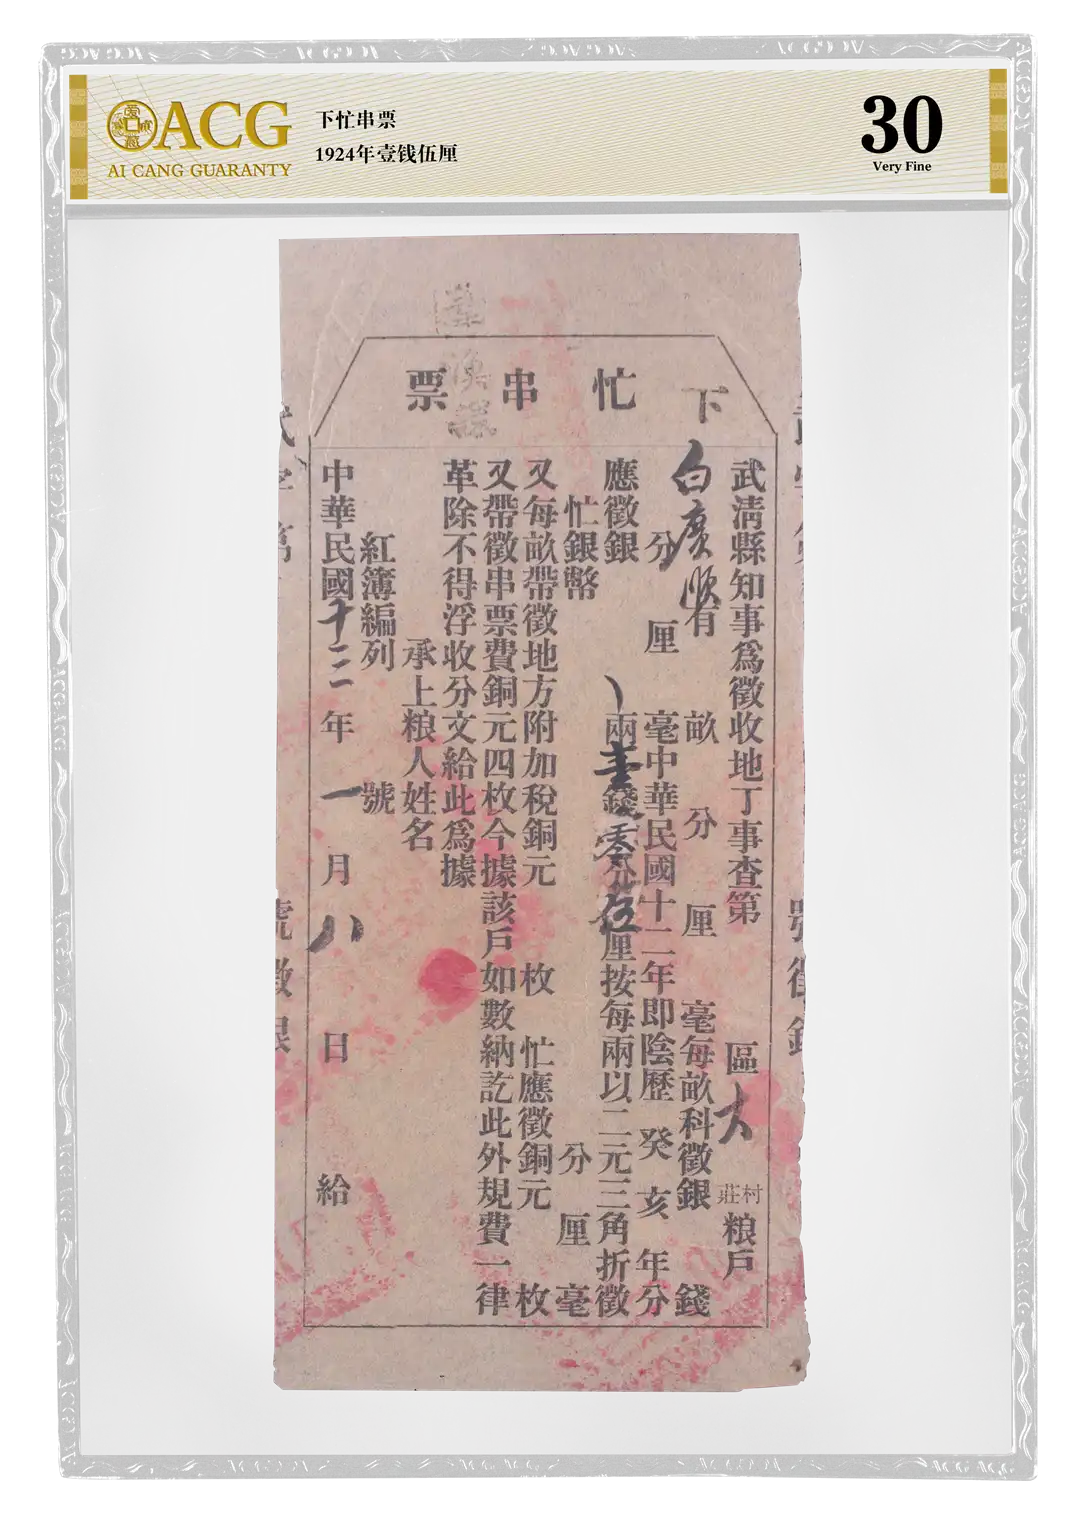 ACG
AI CANG GUARANTY
下忙串票
1924年壹钱伍厘
30
Very Fine
下忙串票
武淸縣知事爲徵收地丁事查第 區大 村莊粮戶
白廣順有 畝 分 厘 毫每畝科徵銀 錢
分 厘 毫中華民國十二年即陰歷癸亥年分
應徵銀 兩壹錢零分伍厘按每兩以二元三角折徵
忙銀幣 分 厘 毫
又每畝帶徵地方附加稅銅元 枚 忙應徵銅元 枚
又帶徵串票費銅元四枚今據該戶如數納訖此外規費一律
革除不得浮收分文給此爲據
承上粮人姓名
紅簿編列 號
中華民國十三年一月八日給
號徵銀